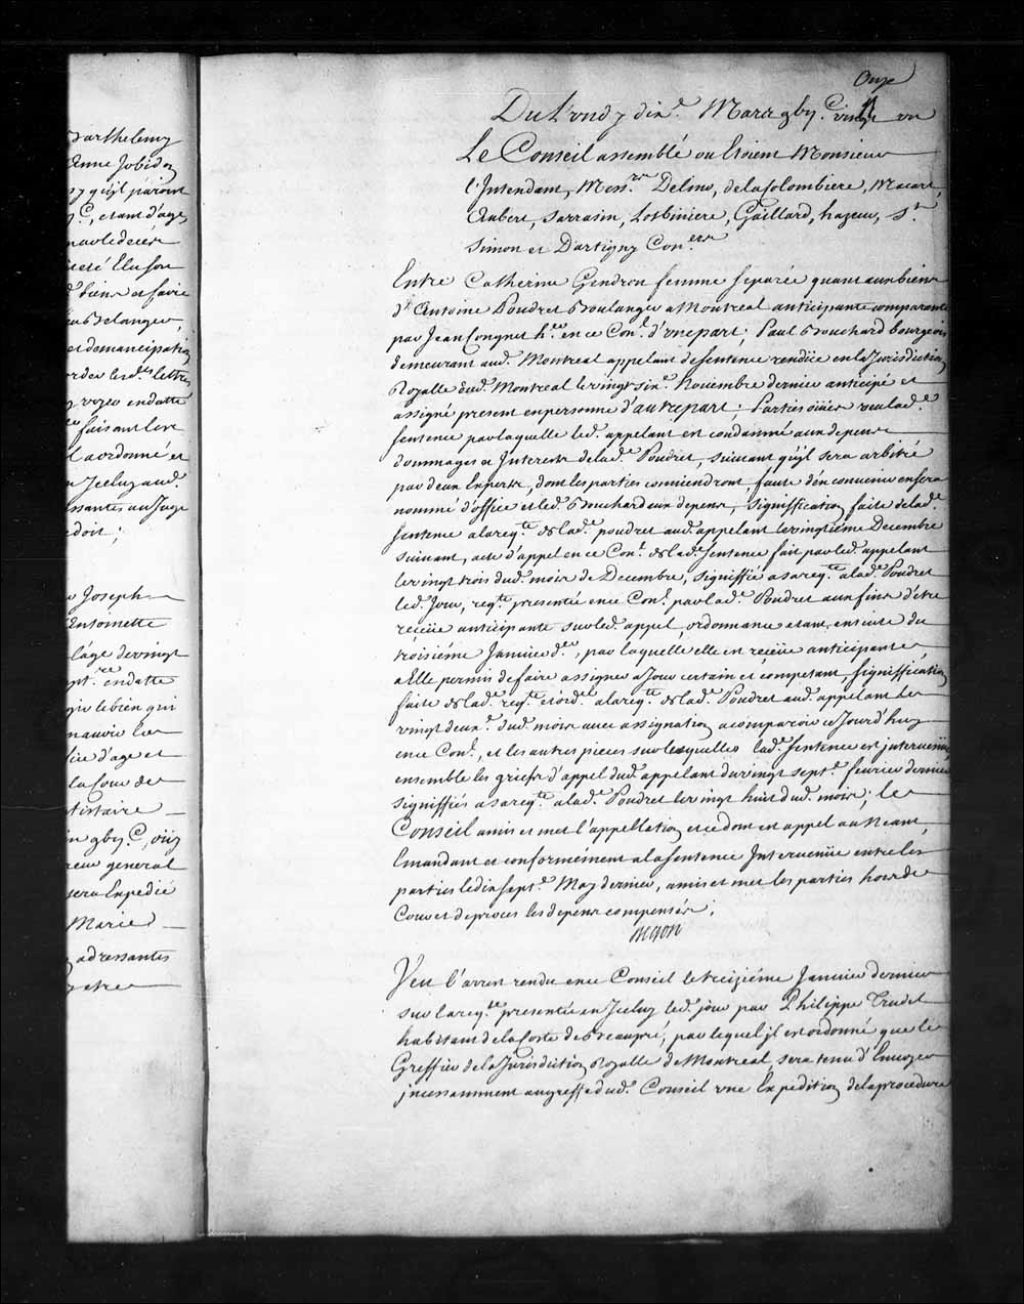 Barthelemy
Anne Jobidon
qu'jl paroist
C., etant d'age
esté Elu son
biens et faire
Belanger,
et demancipation
les d.es lettres
endatté
faisant leve
l a ordonné et
n Jceluy aud.
ssantes au Juge
doit ;
Joseph
Antoinette
l'âge de vingt
sept.re en datte
gir le bien qui
d'age et
la Cour de
gbij.C, oüy
reur general
sera Expedié
Marie
adressantes
Onze
Du Lundy dix.e Mars gbij.C vingt un
Le Conseil assemblé ou Etoient Monsieur
l'Intendant, Mess.rs Delino, de la Colombiere, Macart,
Aubert, Sarrasin, Lotbiniere, Gaillard, hazeur, S.t
Simon et Dartigny Con.ers
Entre Catherine Gendron femme separée quant aux biens
d'Antoine Poudret Boulanger a Montreal anticipante comparante
par Jean Congnet h.er en ce Con.l d'une part ; Paul Bouchard bourgeois
demeurant aud. Montreal appelant de sentence rendüe en la Jurisdiction
Royalle dud. Montreal le vingt six.e Novembre dernier anticipé et
assigné present en personne d'autre part ; Parties oüies veu lad.e
sentence par laquelle led. appelant est condamné aux depens
dommages et Interests de lad.e Poudret, suivant qu'jl sera arbitré
par deux Experts, dont les parties conviendront, faute d'en convenir en sera
nommé d'office et led. Bouchard aux depens, signiffication faite de lad.e
sentence a la req.te de lad.e poudret aud. appelant le vingtiéme Decembre
suivant, acte d'appel en ce Con.l de lad.e sentence fait par led. appelant
le vingt trois dud. mois de Decembre, signiffié a sa req.te a lad.e Poudret
led. Jour, req.te presentée en ce Con.l par lad.e Poudret aux fins d'être
reçüe anticipante sur led. appel, ordonnance etant ensuite du
troisiéme Janvier d.er, par laquelle elle est reçüe anticipante,
a Elle permis de faire assigner a Jour certain et competant, signiffication
faite de lad.e req.te et ord.ce a la req.te de lad.e Poudret aud. appelant le
vingt deux.e dud. mois avec assignation a comparoir ce Jourd'huy
en ce Con.l, et les autres pieces sur lesquelles lad.e sentence est jntervenüe
ensemble les griefs d'appel dud. appelant du vingt sept.e fevrier dernier
signiffiés a sa req.te a lad.e Poudret le vingt huit dud. mois ; le
Conseil a mis et met l'appellation et ce dont est appel au Neant,
Emandant et conformément a la sentence Intervenüe entre les
parties le dix sept.e May dernier, a mis et met les parties hors de
Cour et de proces les depens compensés.
Begon
Veu l'arrest rendu en ce Conseil le treiziéme Janvier dernier
sur la req.te presentée en Jceluy led. jour par Philippe Trudel
habitant de la Coste de Beaupré, par lequel jl est ordonné que le
Greffier de la Jurisdiction Royalle de Montreal, sera tenu d'Envoyer
jncessamment au greffe dud. Conseil une Expedition de la procedure